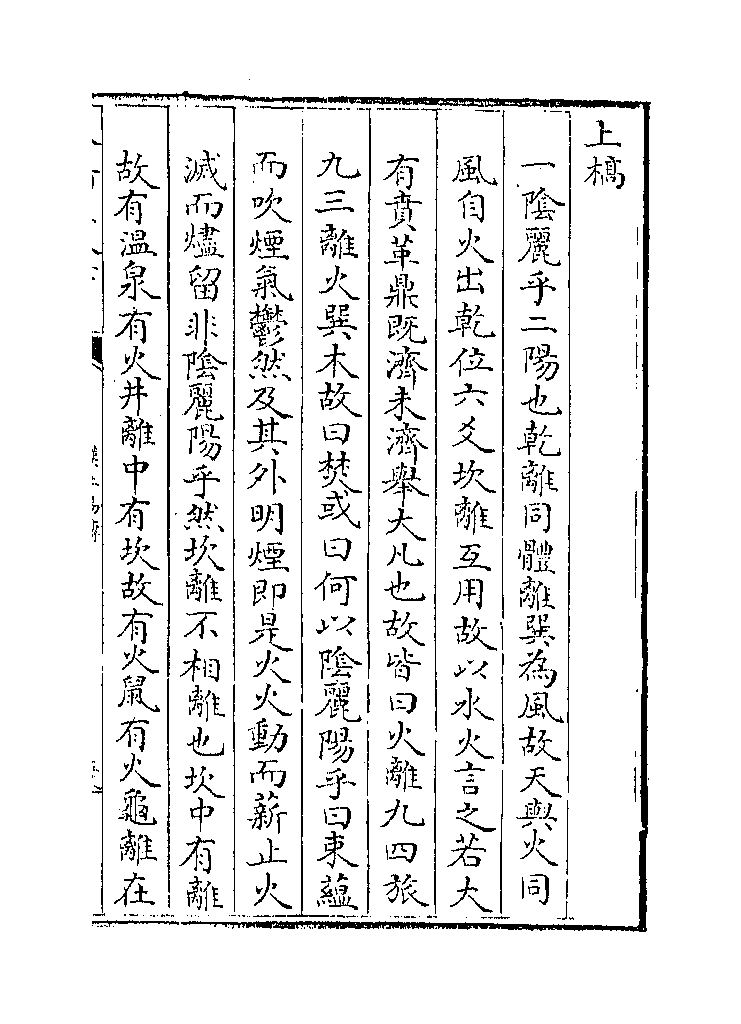 上槁
一陰麗乎二陽也乾離同體離巽為風故天與火同
風自火出乾位六爻坎離互用故以水火言之若大
有賁革鼎既濟未濟舉大凡也故皆曰火離九四旅
九三離火巽木故曰焚或曰何以陰麗陽乎曰束蘊
而吹煙氣鬱然及其外明煙即是火火動而薪止火
滅而燼留非陰麗陽乎然坎離不相離也坎中有離
故有溫泉有火井離中有坎故有火鼠有火龜離在